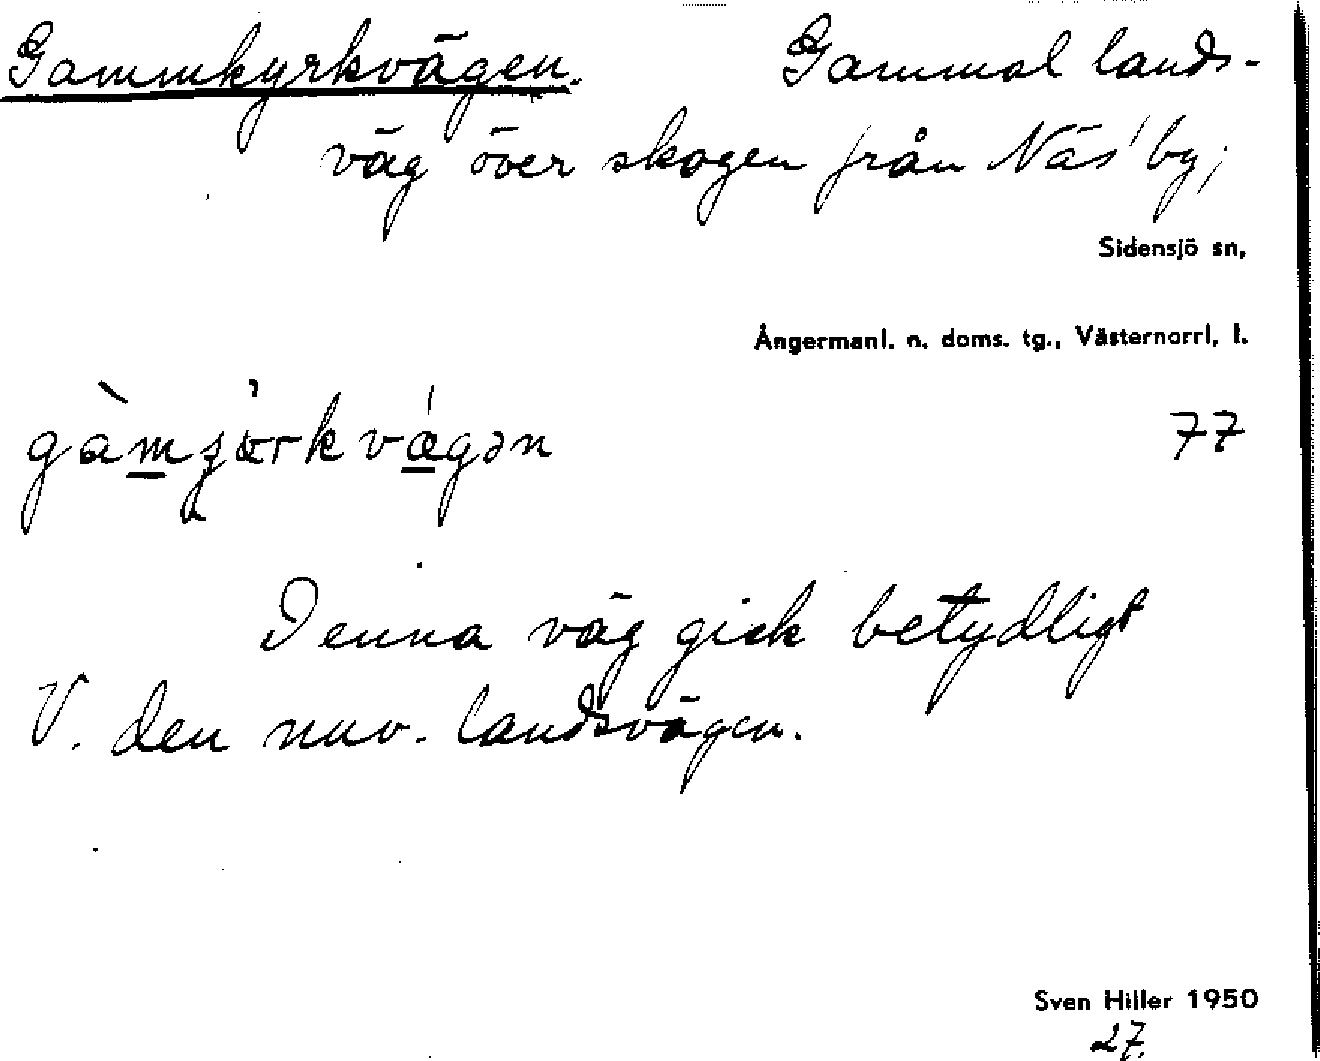 Gammkyrkvägen. Gammal lands-
väg över skogen från Näs' by;
Sidensjö sn,
Ångermanl. n. doms. tg., Västernorrl. l.
77
Denna väg gick betydligt
V. den nuv. landsvägen.
Sven Hiller 1950
27.